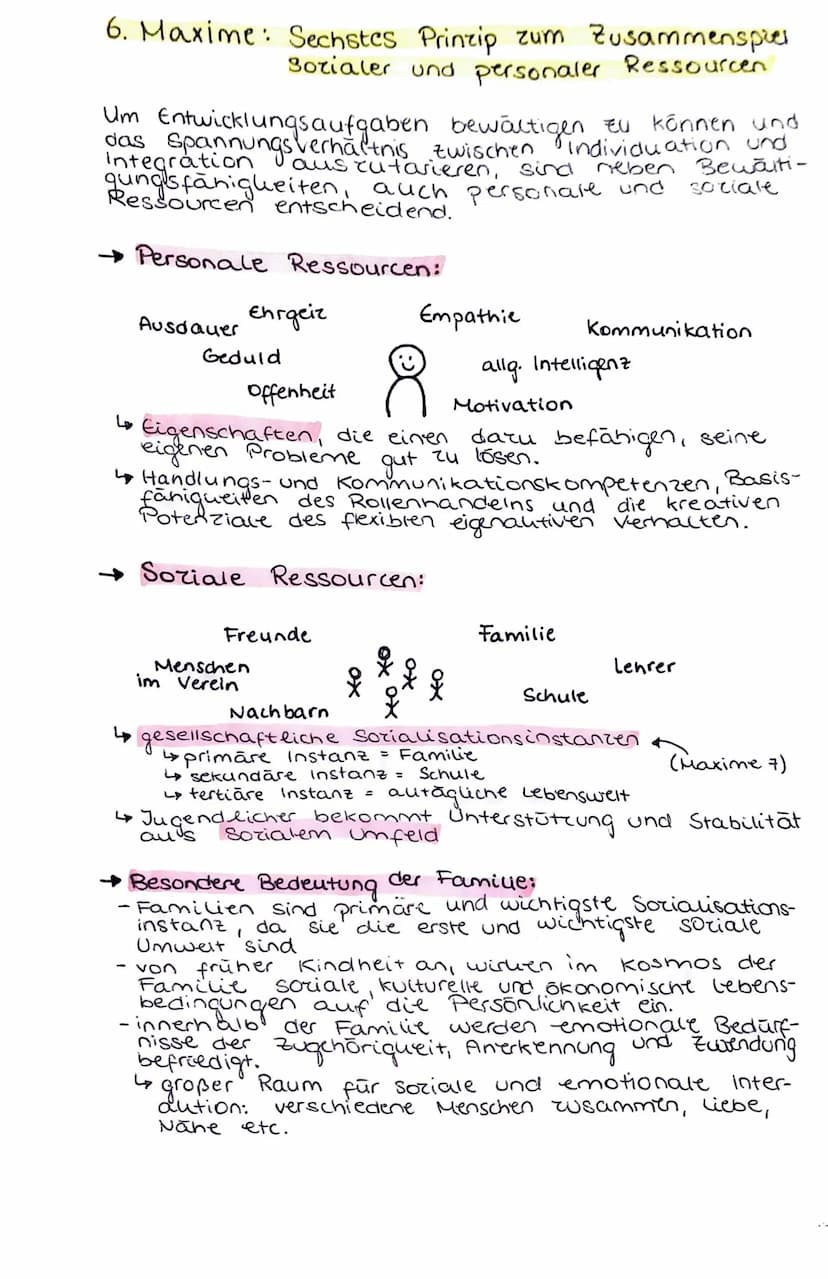 6. Maxime: Sechstes Prinzip zum Zusammenspiel
sozialer und personaler Ressourcen
Um Entwicklungsaufgaben bewältigen zu können und
das Spannungsverhältnis zwischen Individuation und
Integration auszutarieren, sind neben Bewälti-
gungsfähigkeiten, auch personale und soziale
Ressourcen entscheidend.
→ Personale Ressourcen:
Ausdauer Ehrgeiz Empathie Kommunikation
Geduld allg. Intelligenz
Offenheit Motivation
↳ Eigenschaften, die einen dazu befähigen, seine
eigenen Probleme gut zu lösen.
↳ Handlungs- und Kommunikationskompetenzen, Basis-
fähigkeiten des Rollenhandelns und die kreativen
Potenziale des flexiblen eigenaktiven Verhalten.
→ Soziale Ressourcen:
Freunde Familie
Menschen Lehrer
im Verein Schule
Nachbarn
↳ gesellschaftliche Sozialisationsinstanzen
↳ primäre Instanz = Familie (Maxime 7)
↳ sekundäre Instanz = Schule
↳ tertiäre Instanz = alltägliche Lebenswelt
↳ Jugendlicher bekommt Unterstützung und Stabilität
aus sozialem Umfeld
→ Besondere Bedeutung der Familie:
- Familien sind primäre und wichtigste Sozialisations-
instanz, da sie die erste und wichtigste soziale
Umwelt sind
- von früher Kindheit an, wirken im Kosmos der
Familie soziale, kulturelle und ökonomische Lebens-
bedingungen auf die Persönlichkeit ein.
- innerhalb der Familie werden emotionale Bedürf-
nisse der Zugehörigkeit, Anerkennung und Zuwendung
befriedigt.
↳ großer Raum für soziale und emotionale Inter-
aktion: verschiedene Menschen zusammen, Liebe,
Nähe etc.